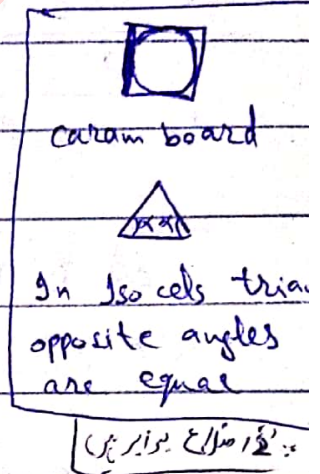 caram board
In Isocels tria
opposite angles
are equal
اضلاع برابر ہیں